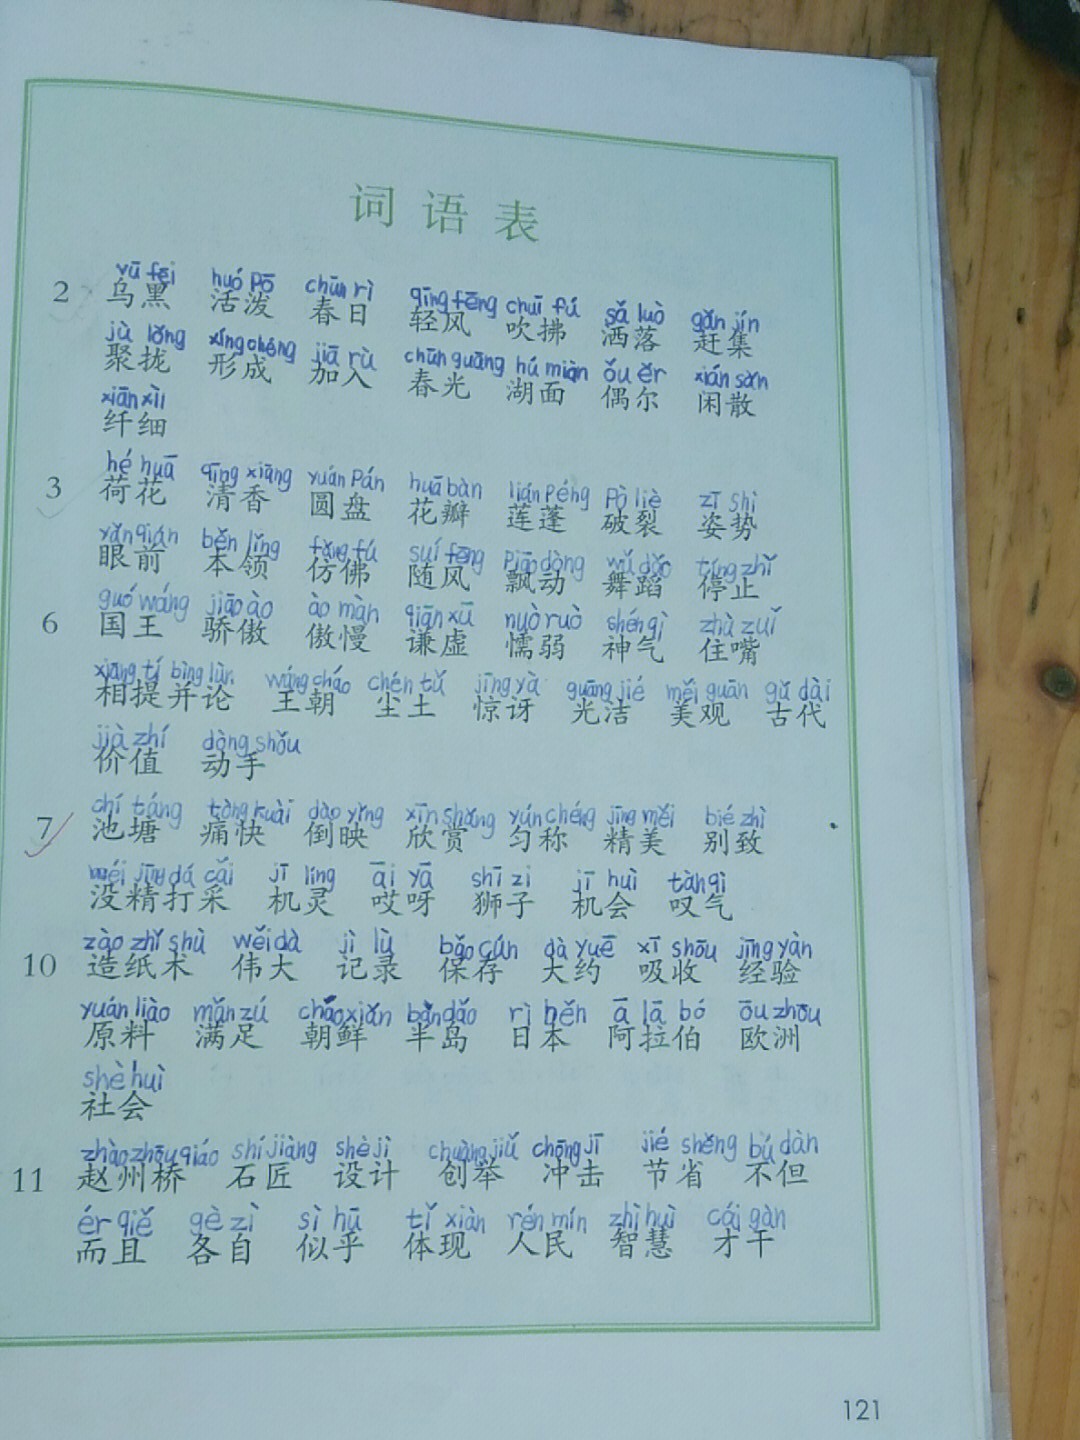 词语表
vū fēi huó pō chūn rì qīng fēng chuī fú sǎ luò gǎn jín
2 乌黑 活泼 春日 轻风 吹拂 洒落 赶集
jù lǒng xíng chéng jiā rù chūn guāng hú miàn ǒu ěr xián sàn
聚拢 形成 加入 春光 湖面 偶尔 闲散
xiān xì
纤细
hé huā qīng xiāng yuán pán huā bàn lián péng pò liè zī shì
3 荷花 清香 圆盘 花瓣 莲蓬 破裂 姿势
yǎn qián běn lǐng fǎng fú suí fēng piāo dòng wǔ dǎo tíng zhǐ
眼前 本领 仿佛 随风 飘动 舞蹈 停止
guó wáng jiāo ào ào màn qiān xū nuò ruò shén qì zhù zuǐ
6 国王 骄傲 傲慢 谦虚 懦弱 神气 住嘴
xiāng tí bìng lùn wáng cháo chén tǔ jīng yà guāng jié měi guān gǔ dài
相提并论 王朝 尘土 惊讶 光洁 美观 古代
jià zhí dòng shǒu
价值 动手
chí táng tòng kuài dào yǐng xīn shǎng yún chéng jīng měi bié zhì
7 池塘 痛快 倒映 欣赏 匀称 精美 别致
méi jīng dá cǎi jī líng āi yā shī zi jī huì tàn qì
没精打采 机灵 哎呀 狮子 机会 叹气
zào zhǐ shù wěi dà jì lù bǎo cún dà yuē xī shōu jīng yàn
10 造纸术 伟大 记录 保存 大约 吸收 经验
yuán liào mǎn zú cháo xiǎn bàn dǎo rì běn ā lā bó ōu zhōu
原料 满足 朝鲜 半岛 日本 阿拉伯 欧洲
shè huì
社会
zhào zhōu qiáo shí jiàng shè jì chuàng jǔ chōng jī jié shěng bú dàn
11 赵州桥 石匠 设计 创举 冲击 节省 不但
ér qiě gè zì sì hū tǐ xiàn rén mín zhì huì cái gàn
而且 各自 似乎 体现 人民 智慧 才干
121